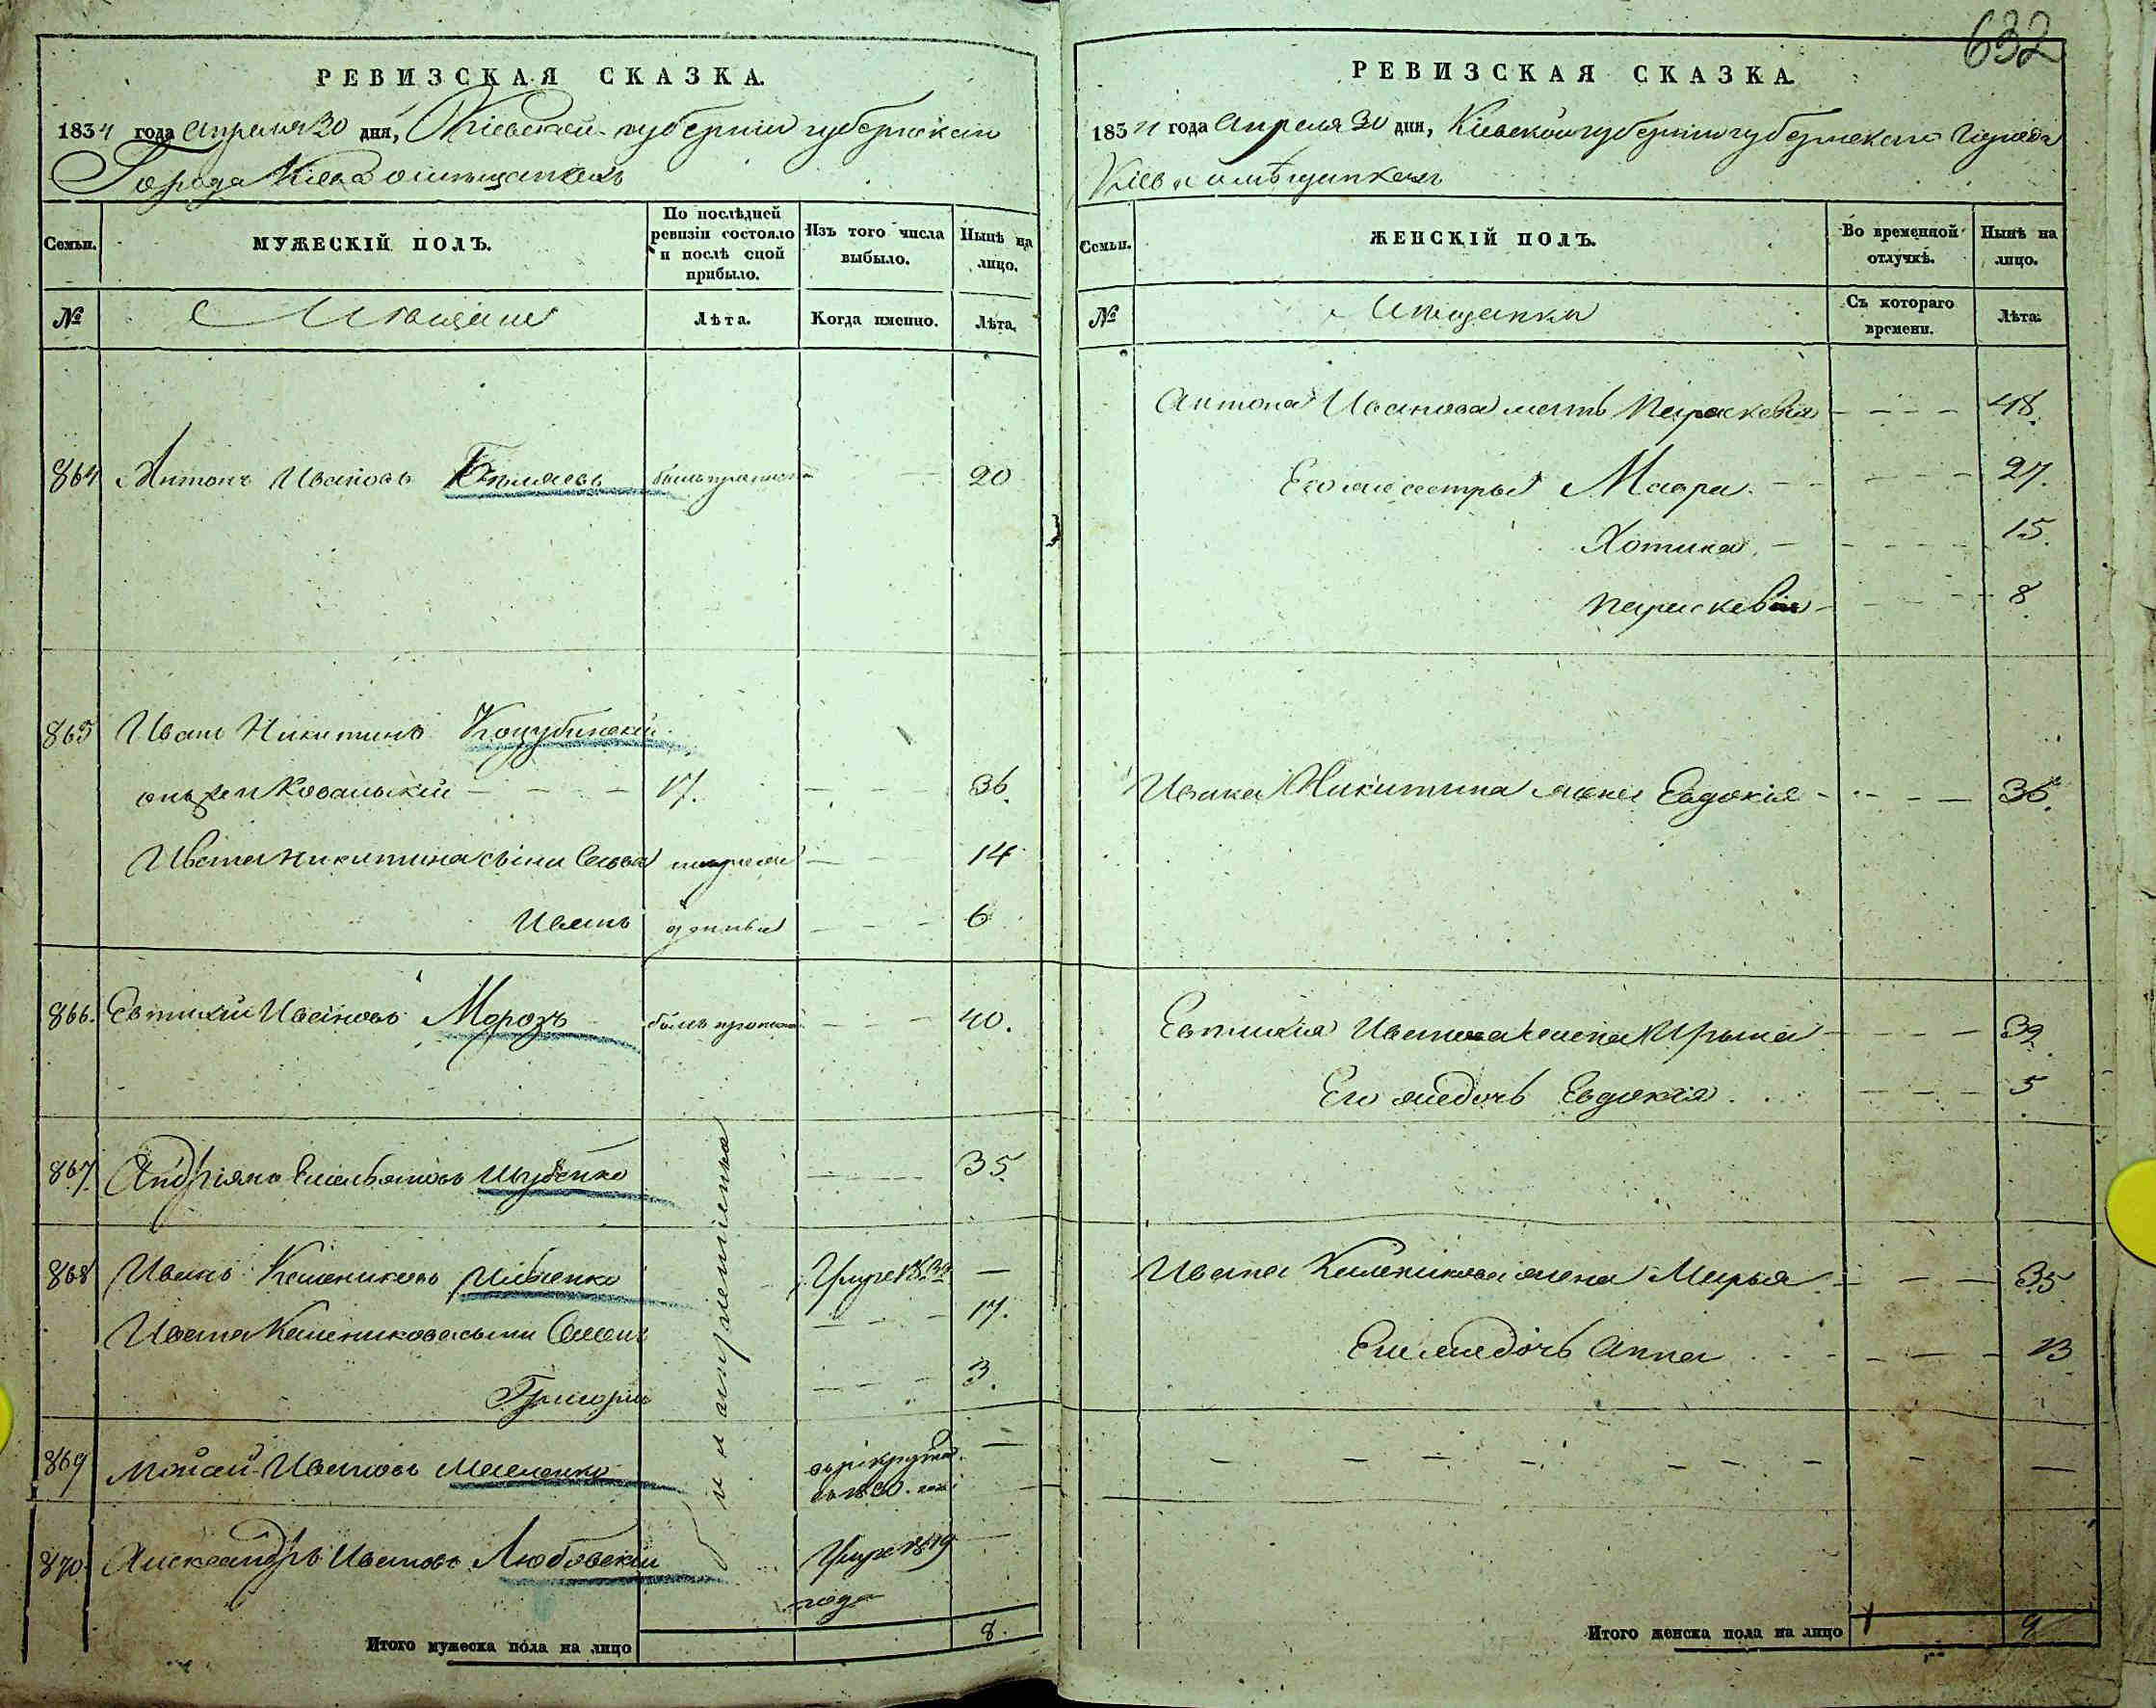 632
РЕВИЗСКАЯ СКАЗКА.
1834 года Апреля 30 дня, Киевской губернии губернскаго
Города Киева о мещанахъ
Семьи.
МУЖЕСКІЙ ПОЛЪ.
По послѣдней ревизіи состояло и послѣ оной прибыло.
Изъ того числа выбыло.
Нынѣ на лицо.
№
Мещане
Лѣта.
Когда именно.
Лѣта.
864 Антонъ Ивановъ 20
865 Иванъ Никитинъ Коцубинскій
онъ же и Ковальскій 17. 36.
Ивана Никитина сыни 14
Иванъ 6
866. Евтихій Ивановъ Морозъ 40.
867. Андріянъ Емельяновъ 35.
868 Иванъ Калениковъ Умре —
Ивана Каленикова сыни Семенъ 17.
Григорій 3.
869 Мойсей Ивановъ —
870. Александръ Ивановъ Любовскій Умре 1819 —
года
Итого мужеска пола на лицо 8.
РЕВИЗСКАЯ СКАЗКА.
1834 года Апреля 30 дня, Киевской губернии губернскаго города
Киева о мѣщанкахъ
Семьи.
ЖЕНСКІЙ ПОЛЪ.
Во временной отлучкѣ.
Нынѣ на лицо.
№
Мещанки
Съ котораго времени.
Лѣта.
Антона Иванова мать Параскевія 48.
Его же сестры Мавра 27.
Хотина 15.
Параскевія 8
Ивана Никитина жена Евдокія 36.
Евтихія Иванова жена Ирина 39.
Его же дочь Евдокія 5
Ивана Каленикова жена Марья 35
Его же дочь Анна 13
Итого женска пола на лицо 9